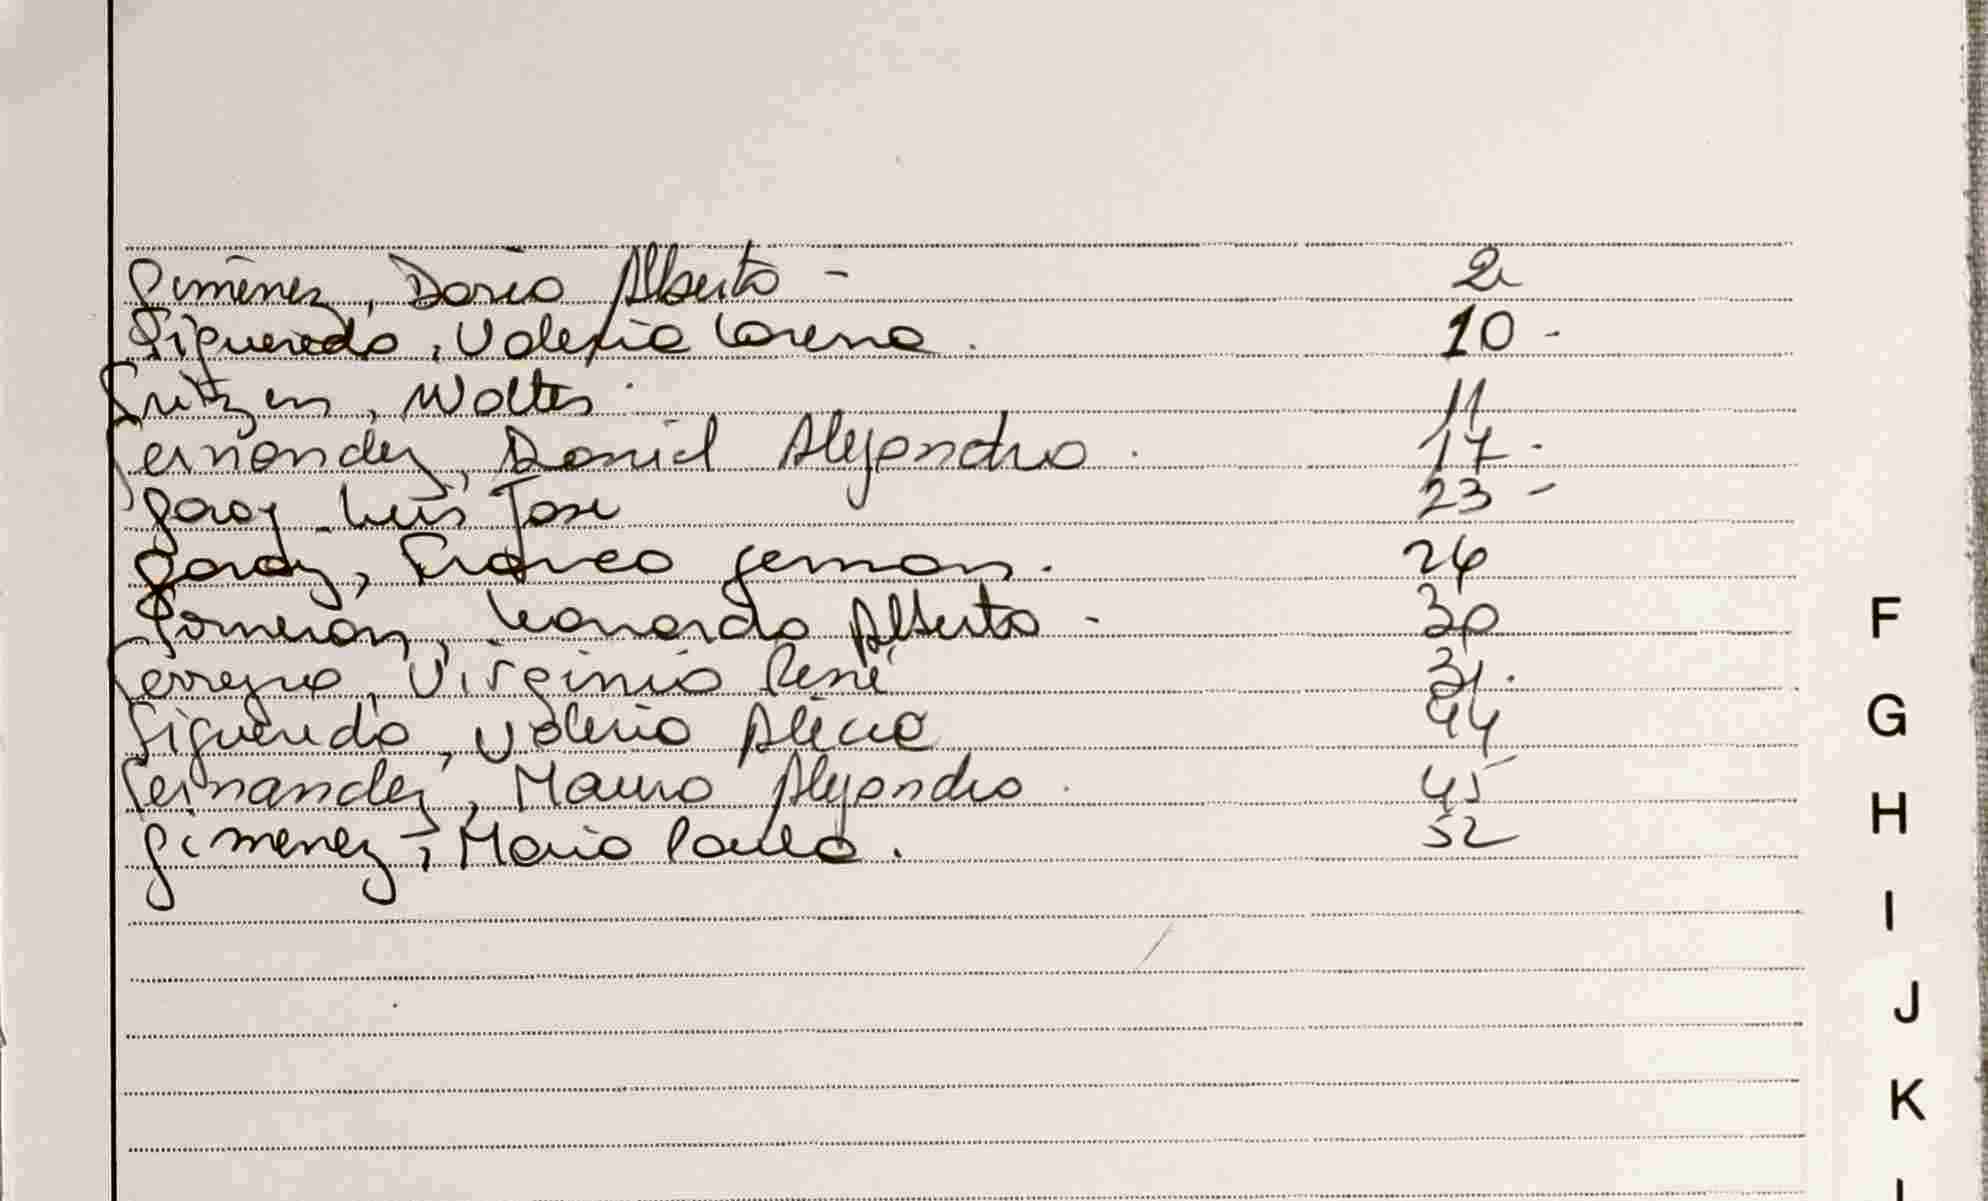 Gimenez, Dario Alberto - 2
Figueredo, Valeria Lorena. 10 -
Fritzen, Walter. 11
Fernandez, Daniel Alejandro. 17 -
Garay Luis Jose 23 -
Garay, Franco German. 26
Leonardo Alberto - 30
Ferreyra, Virginia René 31.
Figueredo, Valeria Alicia 44
Fernandez, Mauro Alejandro. 45
Gimenez, Mario Paulo. 52
F
G
H
I
J
K